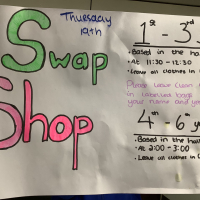 Thuesday
19th
Swap
Shop
1st - 3rd
• Based in the ha
• At 11:30 - 12:30
• Leave all clothes in
Please leave clean
in
your name and ye
4th - 6th y
• Based in the hall
• At 2:00 - 3:00
• Leave all clothes in C